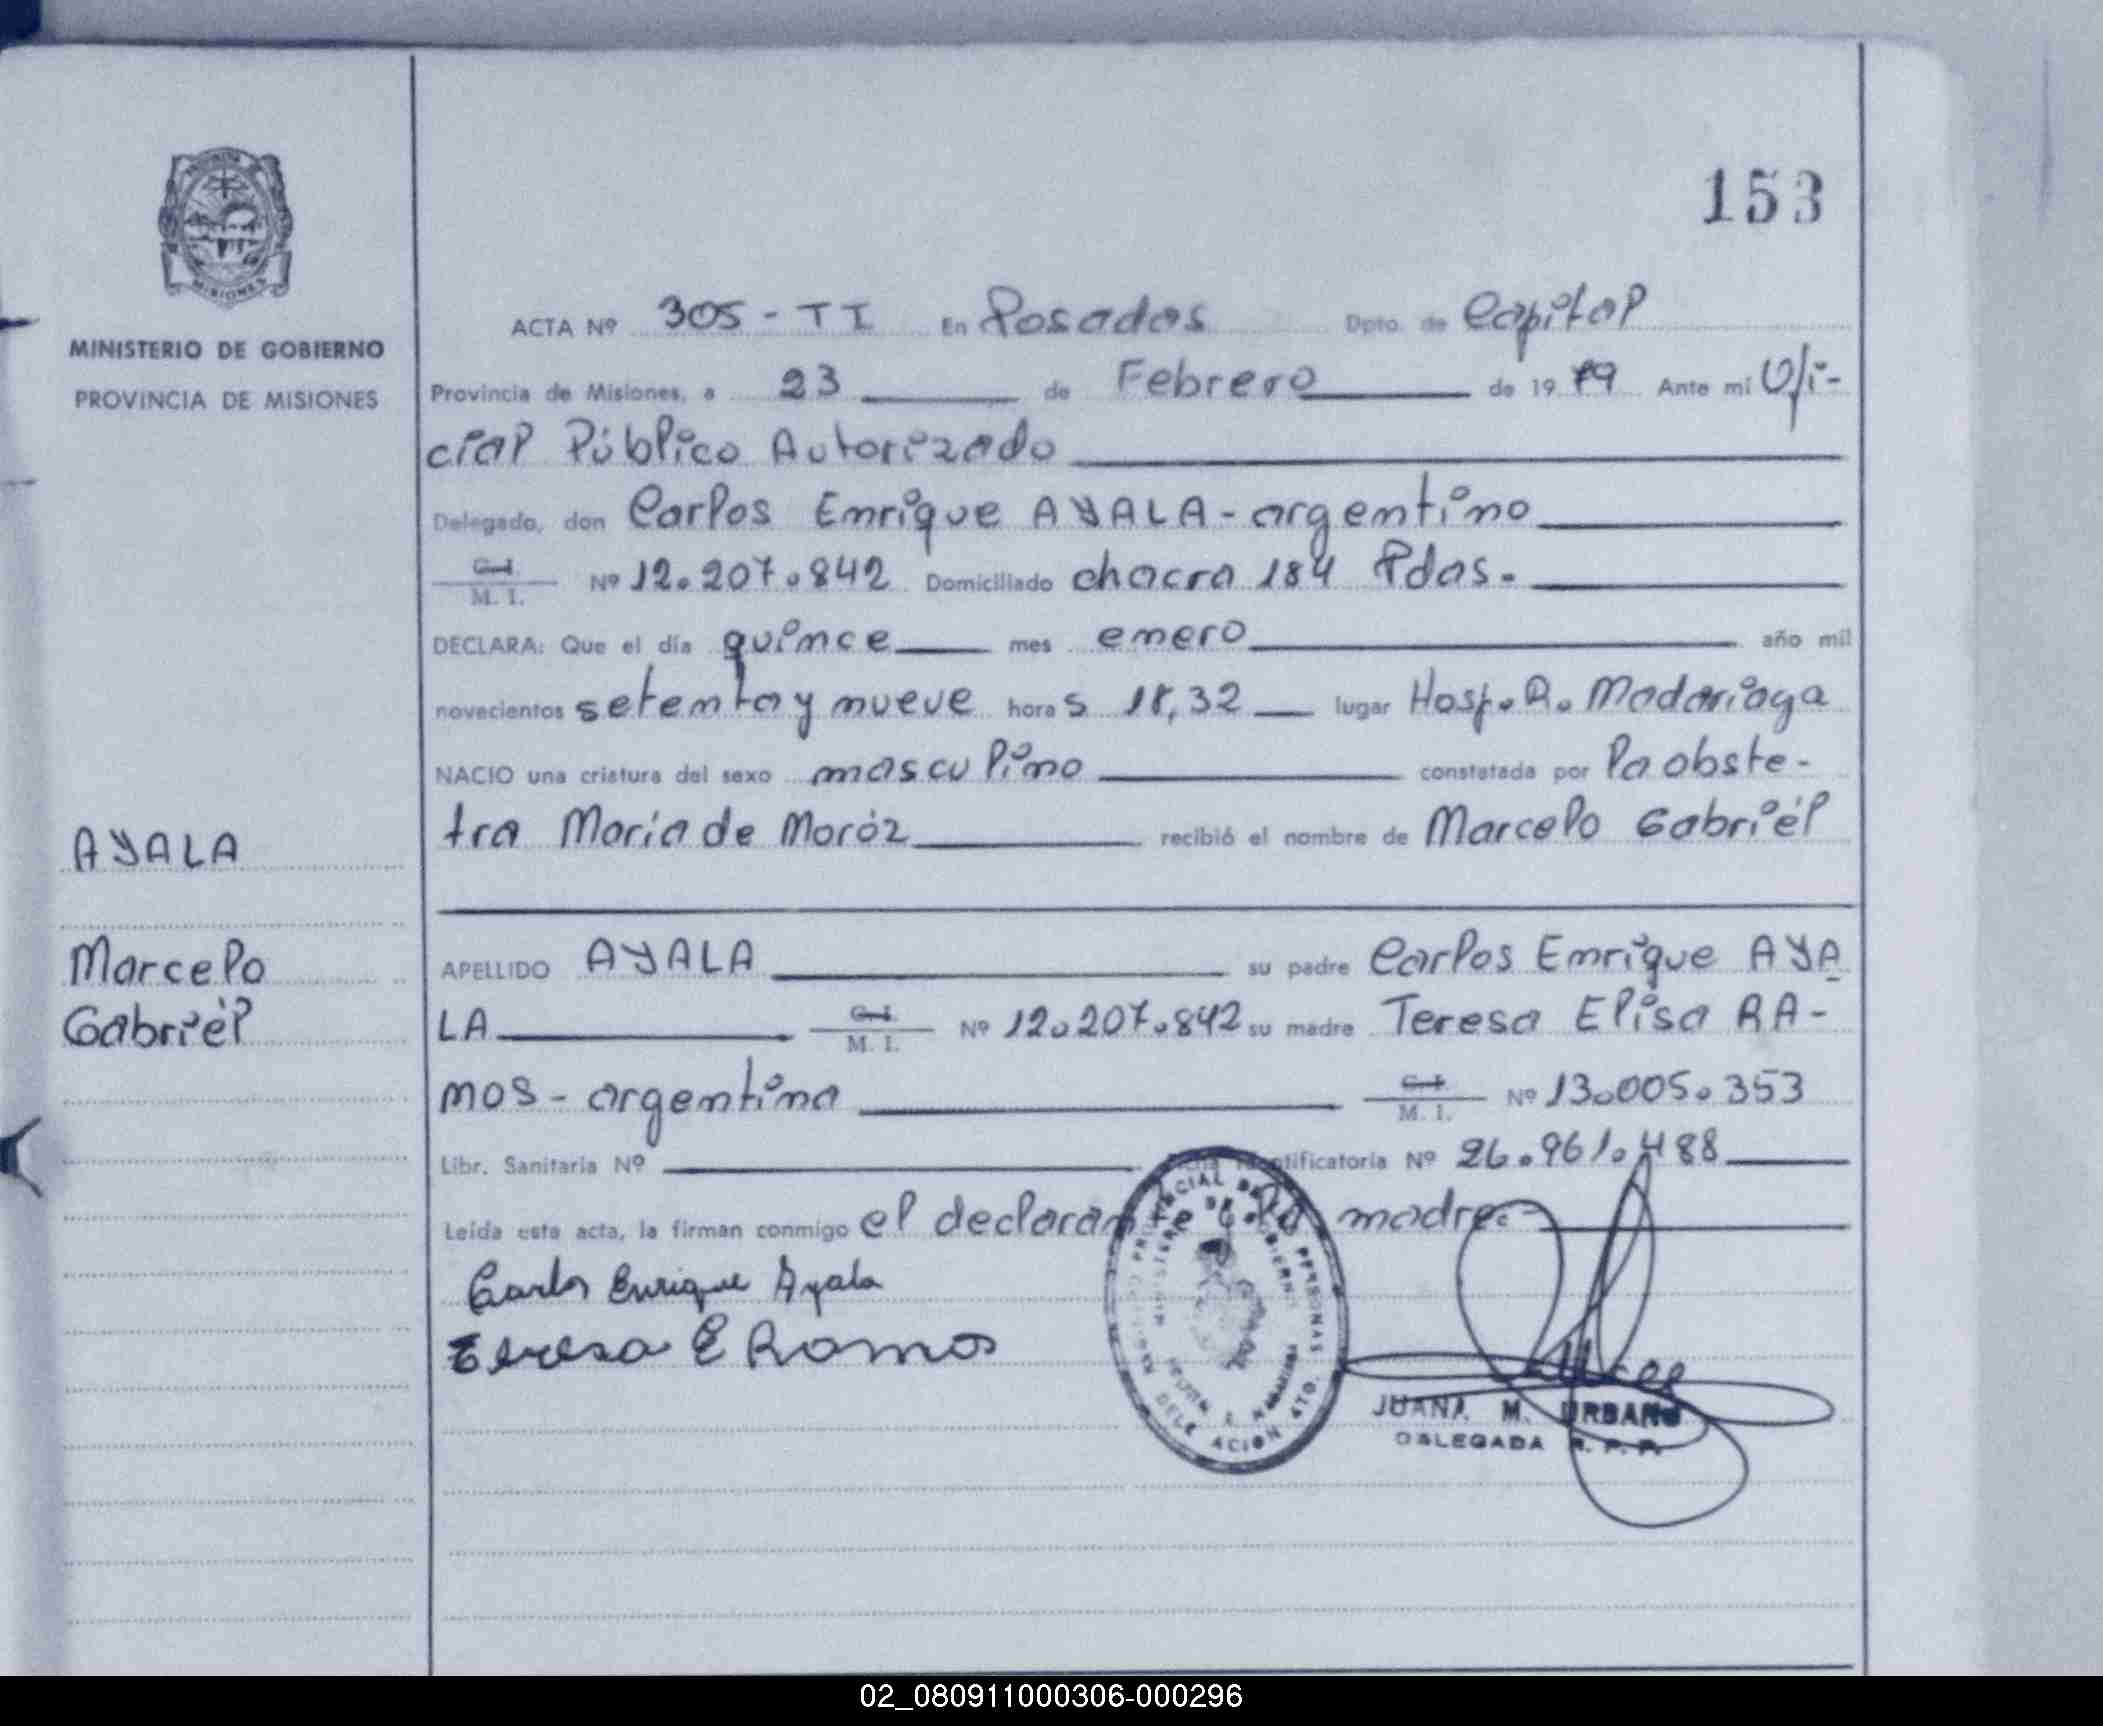 153
MINISTERIO DE GOBIERNO
PROVINCIA DE MISIONES
ACTA Nº 305-TI En Posadas Dpto. de Capital
Provincia de Misiones, a 23 de Febrero de 1979 Ante mí Ofi-
cial Público Autorizado
Delegado, don Carlos Enrique AYALA-argentino
C.I. M. I. Nº 12.207.842 Domiciliado chacra 184 Pdas.
DECLARA: Que el día quince mes enero año mil
novecientos setenta y nueve horas 18,32 lugar Hosp. R. Madariaga
NACIO una criatura del sexo masculino constatada por la obste-
tra María de Moróz recibió el nombre de Marcelo Gabriél
AYALA
Marcelo
Gabriél
APELLIDO AYALA su padre Carlos Enrique AYA
LA C.I. M. I. Nº 12.207.842 su madre Teresa Elisa RA-
MOS-argentina C.I. M. I. Nº 13.005.353
Libr. Sanitaria Nº Identificatoria Nº 26.961.488
Leída esta acta, la firman conmigo el declarante y la madre.
Carlos Enrique Ayala
Teresa E Ramos
JUANA M. URBANO
DELEGADA R. P. P.
02_080911000306-000296